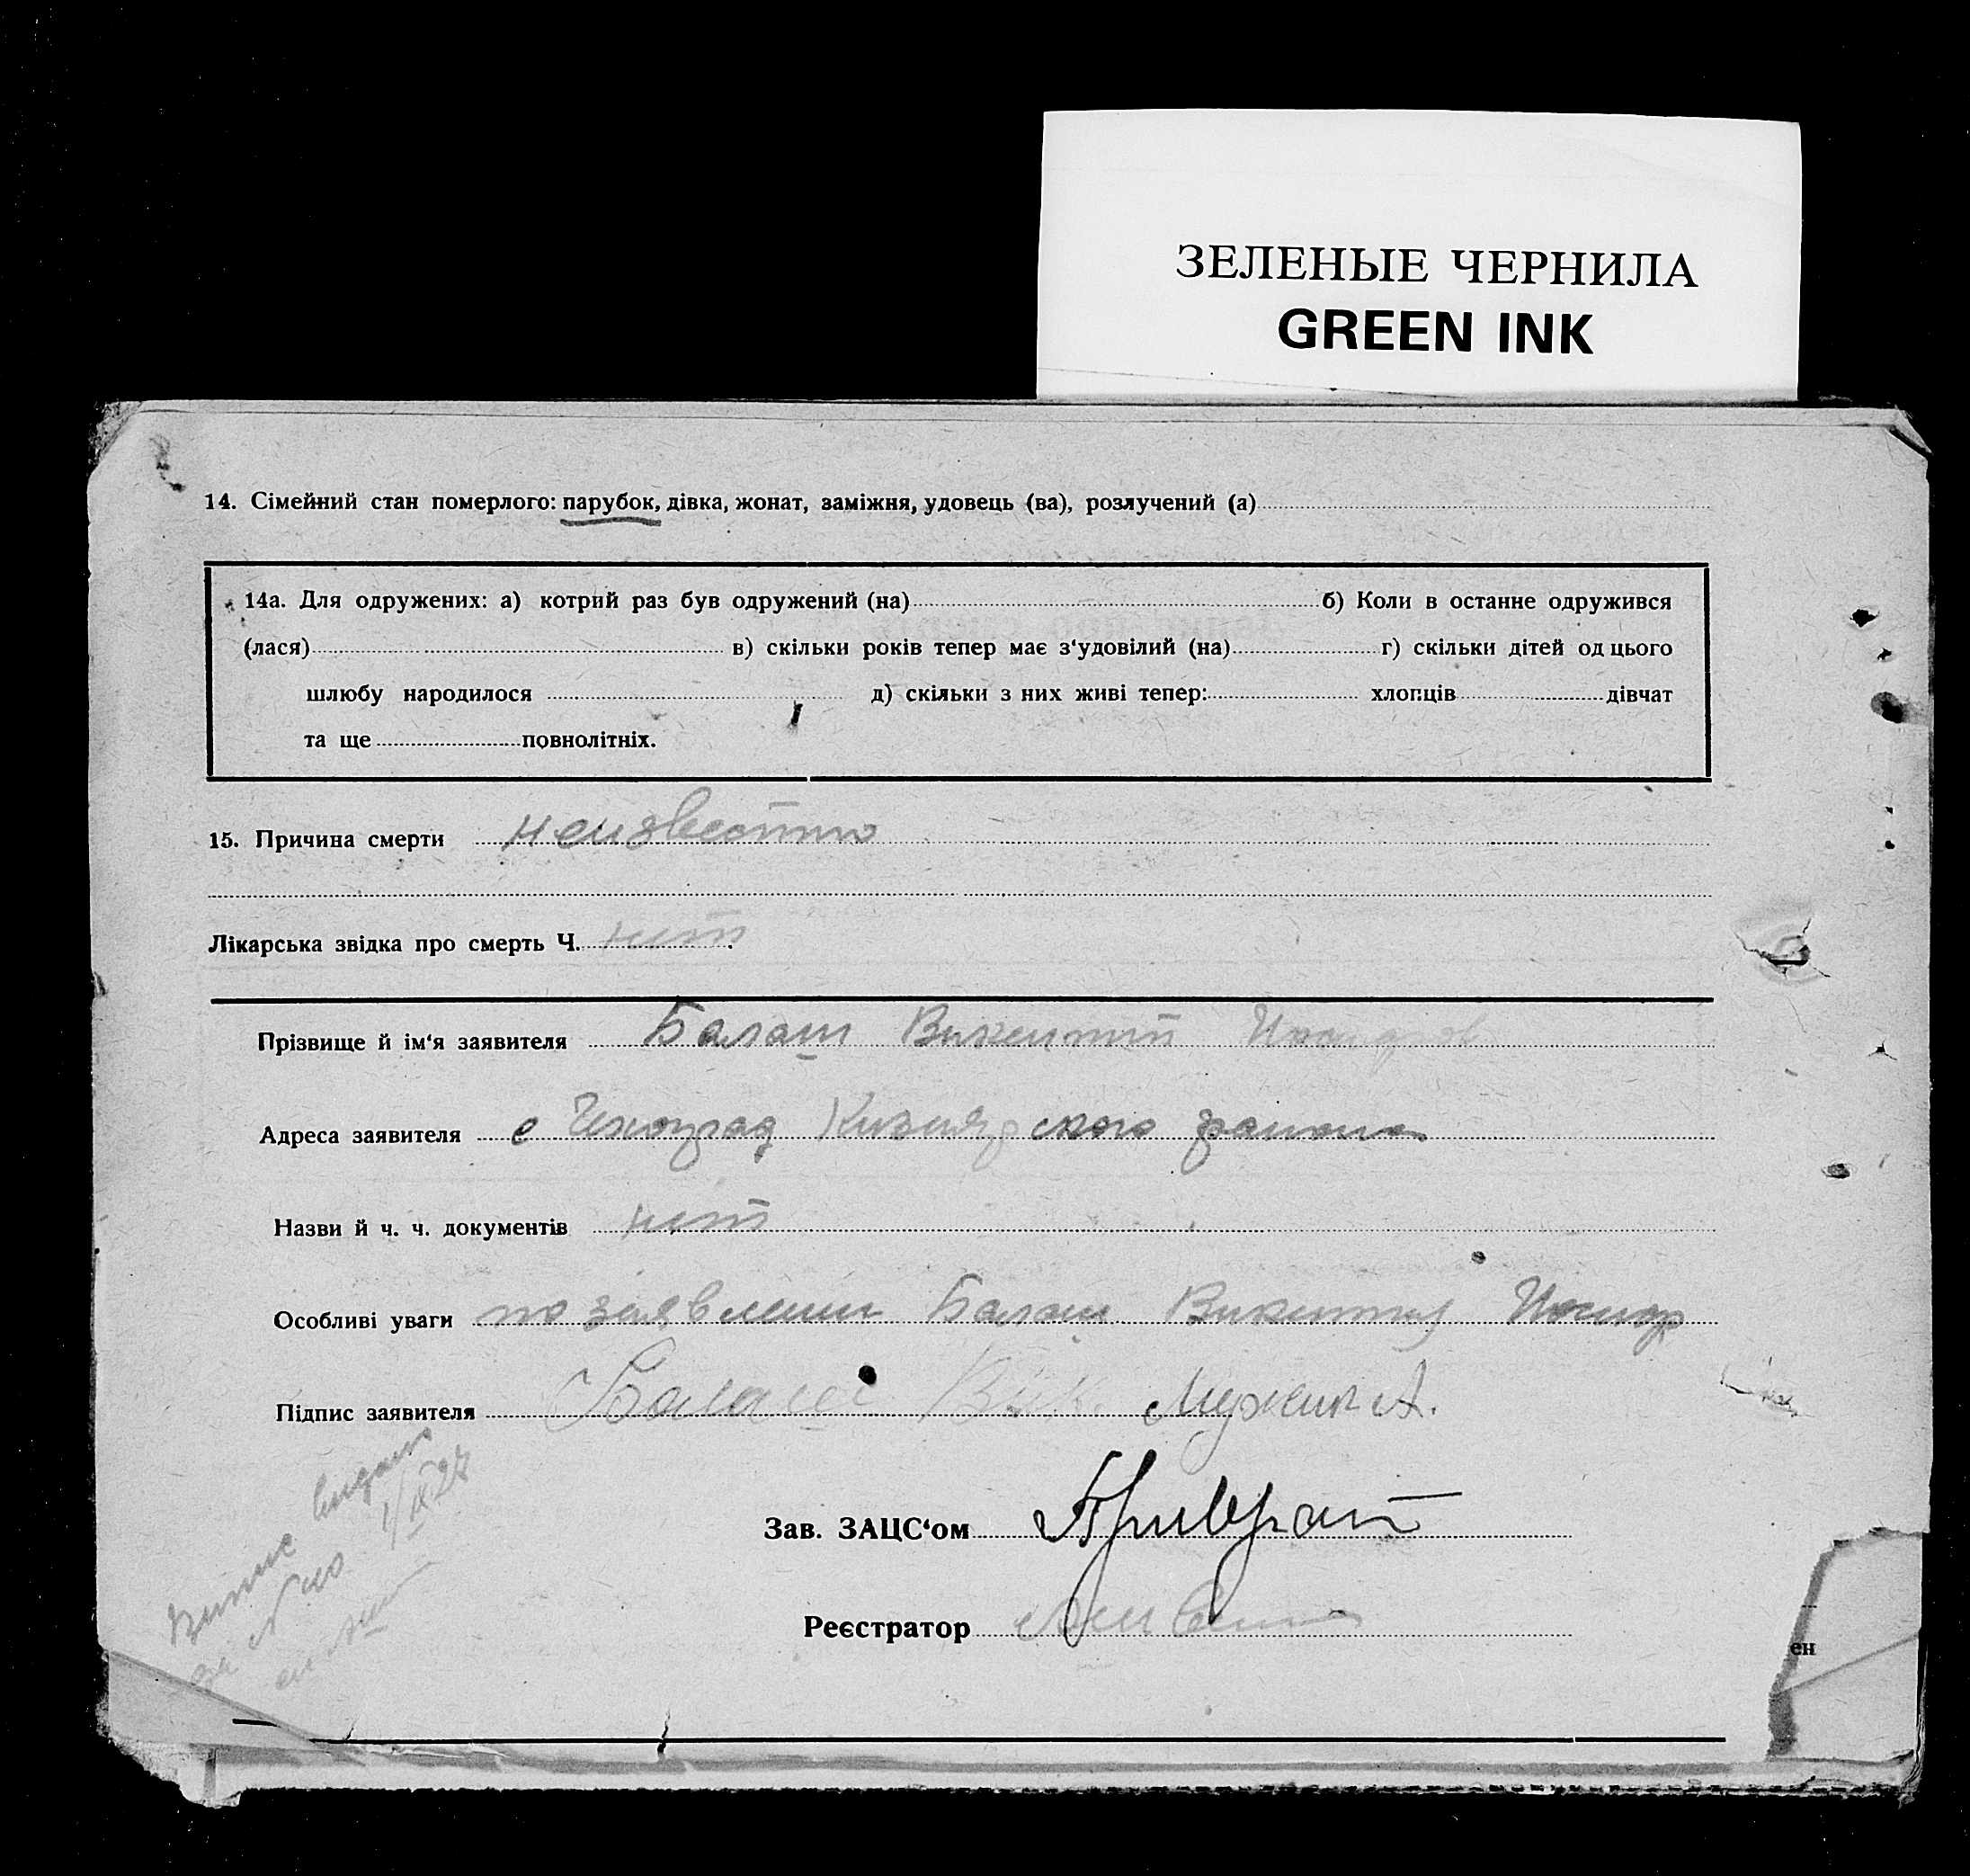 ЗЕЛЕНЫЕ ЧЕРНИЛА
GREEN INK
14. Сімейний стан померлого: парубок, дівка, жонат, заміжня, удовець (ва), розлучений (а)
14а. Для одружених: а) котрий раз був одружений (на) б) Коли в останне одружився
(лася) в) скільки років тепер має з‘удовілий (на) г) скільки дітей од цього
шлюбу народилося д) скільки з них живі тепер: хлопців дівчат
та ще повнолітніх.
15. Причина смерти неизвестно
Лікарська звідка про смерть Ч. нет
Прізвище й ім‘я заявителя Балаш Викентий
Адреса заявителя с Чехоград Кизиярского района
Назви й ч. ч. документів нет
Особливі уваги по заявлению Балаш
Підпис заявителя Балаш Вик. А.
Зав. ЗАЦС‘ом
Реєстратор
ен